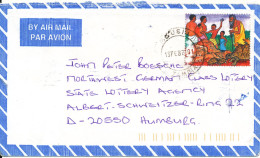 BY AIR MAIL
PAR AVION
JOHN PETER BOESCHE
NORTHWEST GERMAN CLASS LOTTERY
STATE LOTTERY AGENCY
ALBERT-SCHWEITZER-RING
D-20550 HUMBURG